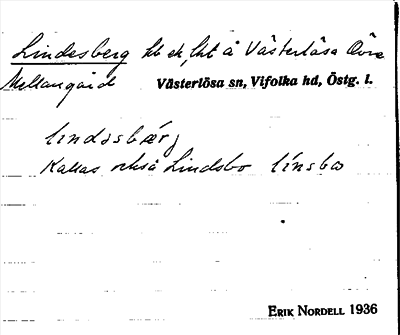 Lindesberg ht ek, lht å Västerlösa Övre
Mellangård Västerlösa sn, Vifolka hd, Östg. l.
lindəsbærj
Kallas också Lindsbo línsbo
ERIK NORDELL 1936